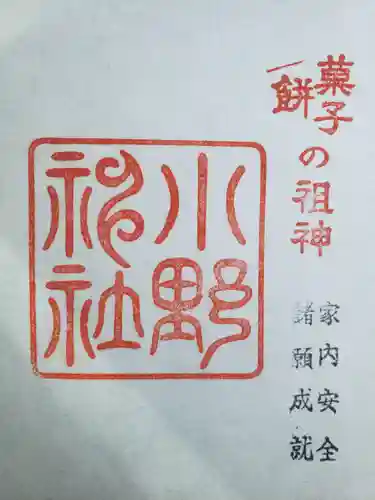 菓子
餅
の祖神
小野
神社
家内安全
諸願成就